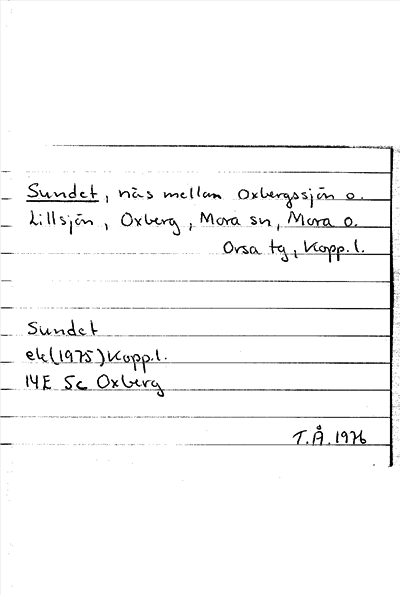 Sundet, näs mellan Oxbergssjön o.
Lillsjön, Oxberg, Mora sn, Mora o.
Orsa tg, Kopp. l.
Sundet
ek (1975) Kopp. l.
14E 5c Oxberg
T.Å. 1976